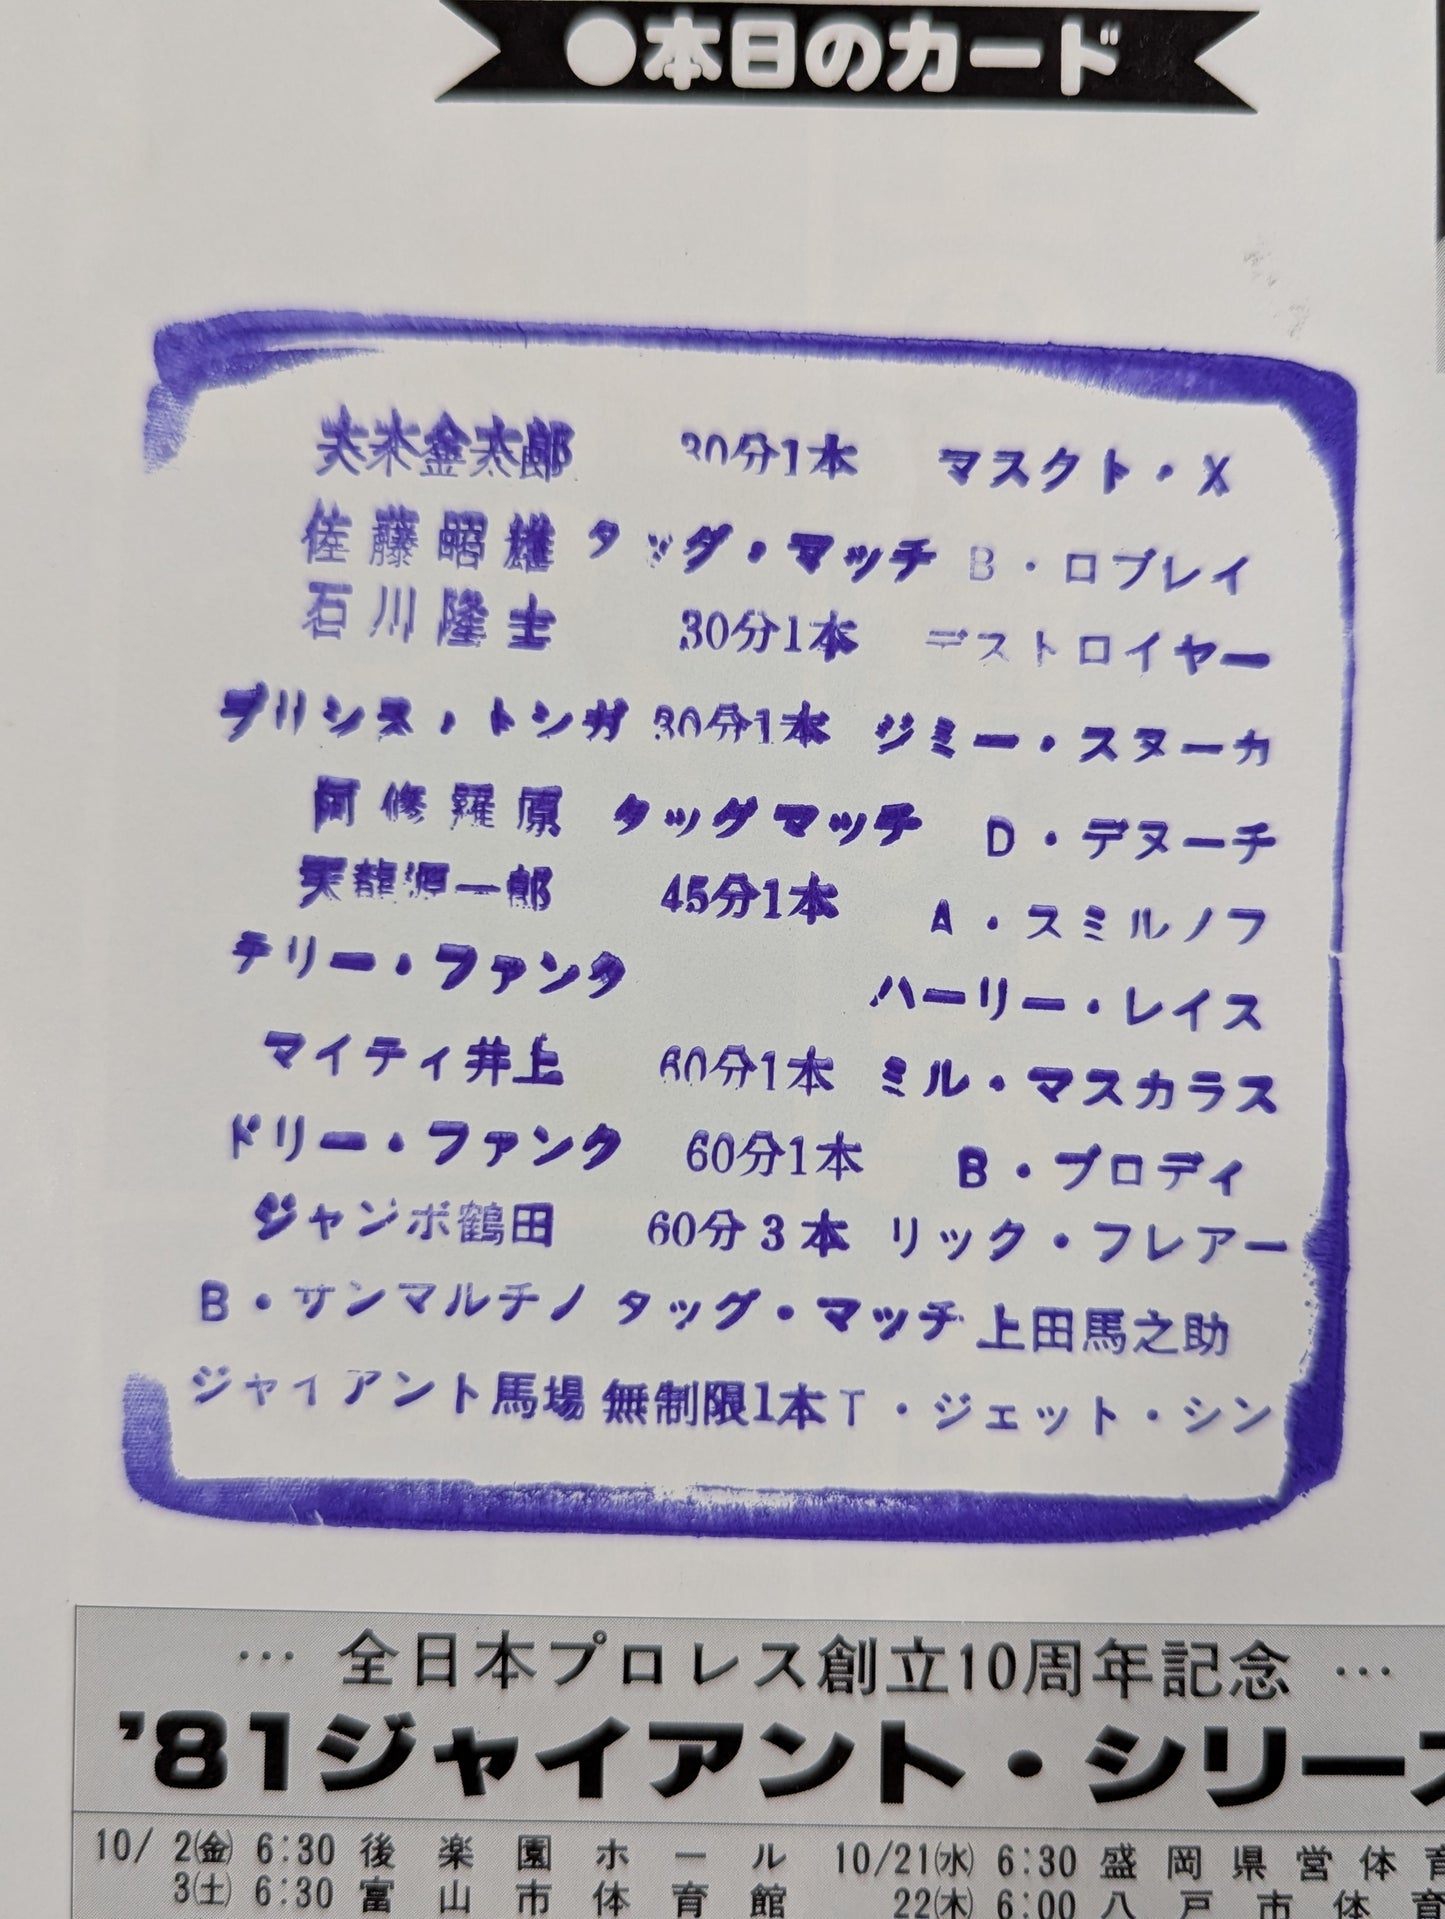 ●本日のカード
大木金太郎 30分1本 マスクト・X
佐藤昭雄 タッグ・マッチ B・ロブレイ
石川隆士 30分1本 デストロイヤー
プリンス・トンガ 30分1本 ジミー・スヌーカ
阿修羅原 タッグマッチ D・デヌーチ
天龍源一郎 45分1本 A・スミルノフ
テリー・ファンク ハーリー・レイス
マイティ井上 60分1本 ミル・マスカラス
ドリー・ファンク 60分1本 B・ブロディ
ジャンボ鶴田 60分3本 リック・フレアー
B・サンマルチノ タッグ・マッチ 上田馬之助
ジャイアント馬場 無制限1本 T・ジェット・シン
… 全日本プロレス創立10周年記念 …
'81ジャイアント・シリーズ
10/ 2㈮ 6:30 後楽園ホール 10/21㈬ 6:30 盛岡県営体育
3㈯ 6:30 富山市体育館 22㈭ 6:00 八戸市体育